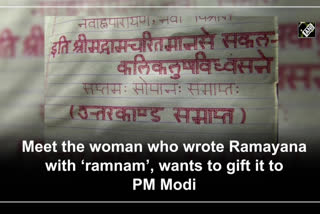 नवाह्नपारायण, नवाँ विश्राम
इति श्रीमद्रामचरितमानसे सकल-
कलिकलुषविध्वंसने
सप्तमः सोपानः समाप्तः
(उत्तरकाण्ड समाप्त)
Meet the woman who wrote Ramayana
with ‘ramnam’, wants to gift it to
PM Modi